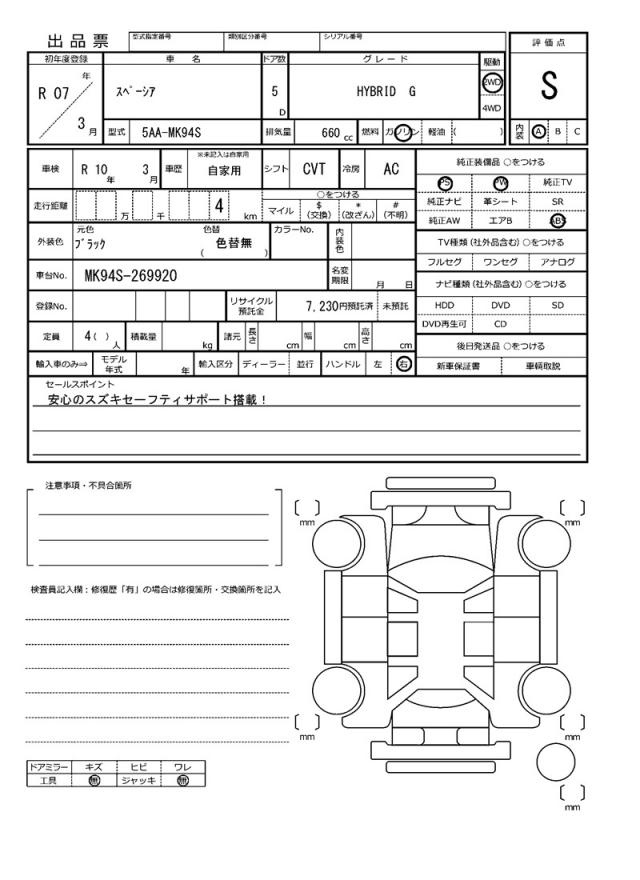 出品票
型式指定番号 類別区分番号 シリアル番号
評価点
初年度登録 車 名 ドア数 グレード 駆動
R 07 年 3 月
スペーシア
5 D
HYBRID G
2WD
4WD
S
型式 5AA-MK94S 排気量 660 cc 燃料 ガソリン 軽油 ( )
内装 A B C
車検 R 10 年 3 月 車歴 ※未記入は自家用 自家用 シフト CVT 冷房 AC
純正装備品 ○をつける
PS PW 純正TV
走行距離 万 千 4 km
○をつける
マイル $(交換) *(改ざん) #(不明)
純正ナビ 革シート SR
純正AW エアB ABS
外装色 元色 ブラック 色替 ( 色替無 ) カラーNo. 内装色
TV種類 (社外品含む) ○をつける
フルセグ ワンセグ アナログ
車台No. MK94S-269920 名変期限 月 日
ナビ種類 (社外品含む) ○をつける
登録No. リサイクル預託金 7,230円預託済 未預託
HDD DVD SD
DVD再生可 CD
定員 4 ( ) 人 積載量 kg 諸元 長さ cm 幅 cm 高さ cm
後日発送品 ○をつける
輸入車のみ⇒ モデル年式 年 輸入区分 ディーラー 並行 ハンドル 左 右
新車保証書 車輌取説
セールスポイント
安心のスズキセーフティサポート搭載!
注意事項・不具合箇所
mm mm
検査員記入欄:修復歴「有」の場合は修復箇所・交換箇所を記入
mm mm
ドアミラー キズ ヒビ ワレ
工具 無 ジャッキ 無
mm